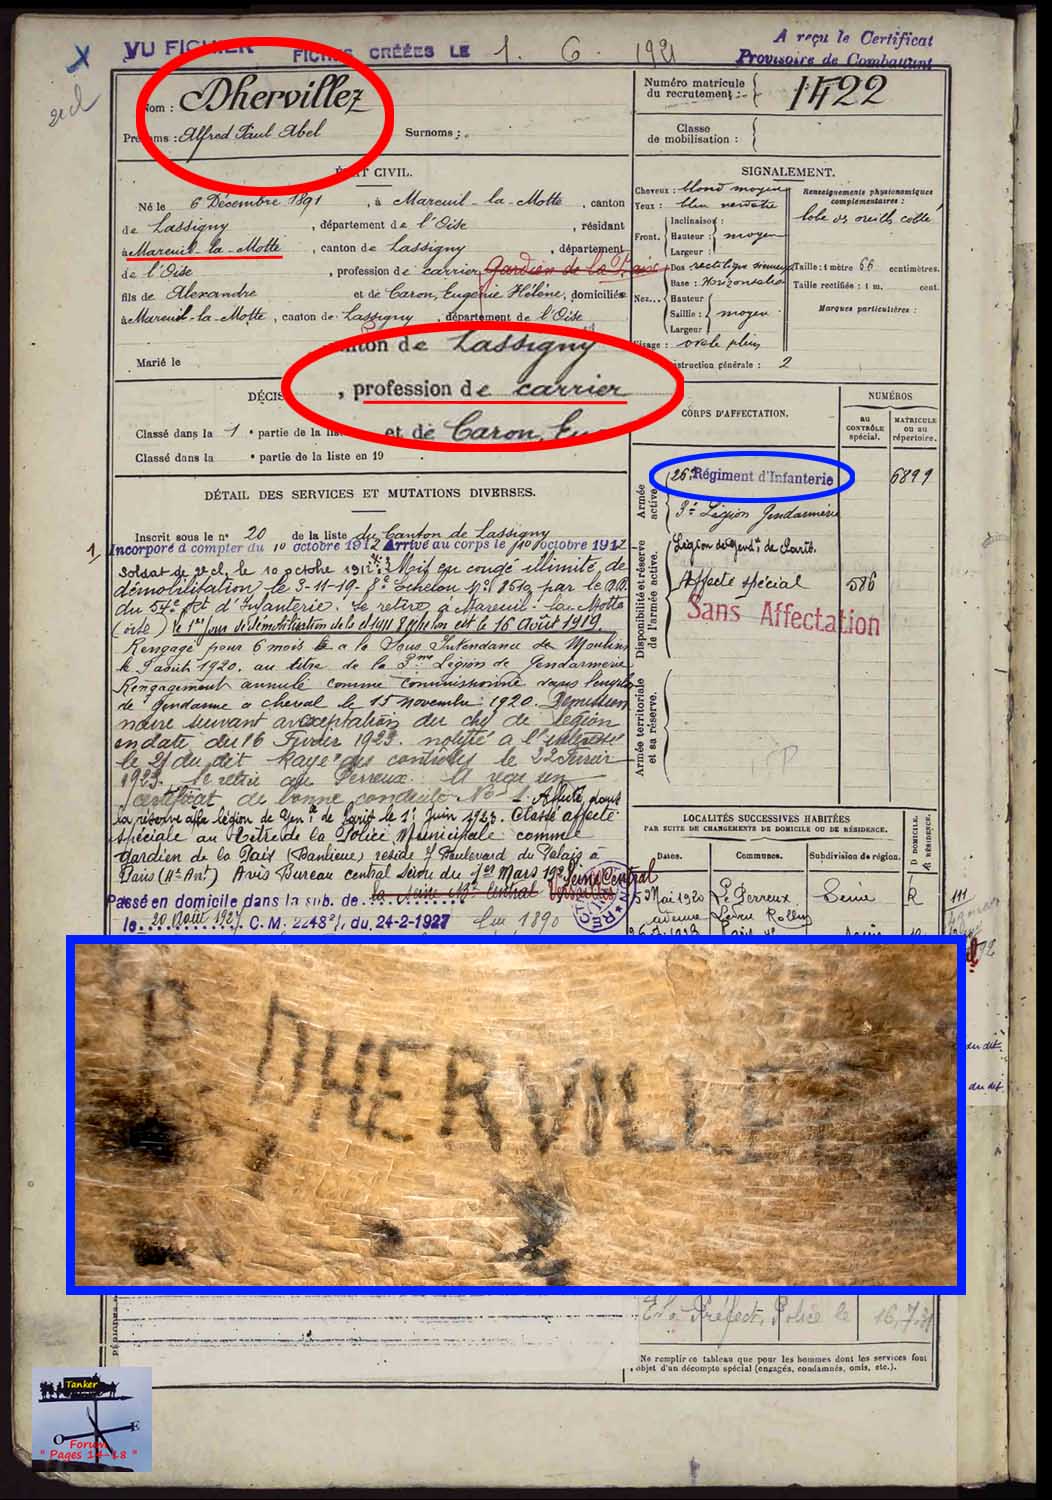 VU FICHIER FICHES CRÉÉES LE 1. 6. 1921
A reçu le Certificat
Provisoire de Combattant
2e cl
Nom : Dhervillez
Prénoms : Alfred Paul Abel
Surnoms :
Numéro matricule
du recrutement : 1422
Classe
de mobilisation :
ÉTAT CIVIL.
Né le 6 Décembre 1891, à Mareuil-la-Motte, canton
de Lassigny, département de l'Oise, résidant
à Mareuil-la-Motte, canton de Lassigny, département
de l'Oise, profession de carrier Gardien de la Paix
fils de Alexandre et de Caron, Eugénie Hélène, domiciliés
à Mareuil-la-Motte, canton de Lassigny, département de l'Oise
Marié le
canton de Lassigny
, profession de carrier
et de Caron, Eu
SIGNALEMENT.
Cheveux : blond moyen
Yeux : bleu verdâtre
Front.
Inclinaison :
Hauteur : moyen
Largeur :
Nez...
Dos rectiligne
Base : Horizontale
Hauteur
Saillie : moyen
Largeur
Visage : ovale plein
Renseignements physionomiques
complémentaires :
Taille : 1 mètre 66 centimètres.
Taille rectifiée : 1 m. cent.
Marques particulières :
struction générale : 2
DÉCIS
Classé dans la 1 e partie de la liste
Classé dans la e partie de la liste en 19
CORPS D'AFFECTATION.
NUMÉROS
au
CONTRÔLE
spécial.
MATRICULE
OU AU
répertoire.
Armée
active.
26e Régiment d'Infanterie 6899
3e Légion Gendarmerie
Disponibilité et réserve
de l'armée active.
Légion de Gend. de Paris.
Affecté spécial 586
Sans Affectation
Armée territoriale
et sa réserve.
DÉTAIL DES SERVICES ET MUTATIONS DIVERSES.
Inscrit sous le n° 20 de la liste du Canton de Lassigny
Incorporé à compter du 10 octobre 1912 Arrivé au corps le 10 octobre 1912
Soldat de 2e cl. le 10 octobre 1912. Mis en congé illimité de
démobilisation le 3-11-19- 8e Echelon No 8519 par le D.D.
du 54e Rgt d'Infanterie. Se retire à Mareuil-la-Motte
(oise)
Rengagé pour 6 mois à la Sous Intendance de Moulins
le 9 août 1920. au titre de la 3me Légion de Gendarmerie
Rengagement annulé comme commissionné dans l'emploi
de gendarme à cheval le 15 novembre 1920. Démission
naire suivant acceptation du chef de légion
en date du 16 Février 1923. notifié à l'intéressé
le 21 du dit Rayé des contrôles le 22 Février
1923. Se retire au Perreux. a reçu un
certificat de bonne conduite No 1. Affecté dans
la réserve à la légion de Gen. de Paris le 1er Juin 1923. Classé affecté
spéciale au titre de la Police Municipale comme
Gardien de la Paix (Banlieue) réside 7 Boulevard du Palais à
Paris (4e Arrt) Avis Bureau central Seine du 1er Mars 192 Seine Central
Passé en domicile dans la sub. de la Seine Bau Central Versailles
le 20 Août 1927 C.M. 2248 2/1 du 24-2-1927
LOCALITÉS SUCCESSIVES HABITÉES
PAR SUITE DE CHANGEMENTS DE DOMICILE OU DE RÉSIDENCE.
Dates. Communes. Subdivision de région. D. DOMICILE. R. RÉSIDENCE.
5 Mai 1920 Le Perreux Seine R
avenue Ledru Rollin
P DHERVILLEZ
du dit.
au dit
Préfect. Police le 16.7.31
Ne remplir ce tableau que pour les hommes dont les services font
objet d'un décompte spécial (engagés, condamnés, omis, etc.).
Tanker
O E
Forum
" Pages 14-18 "